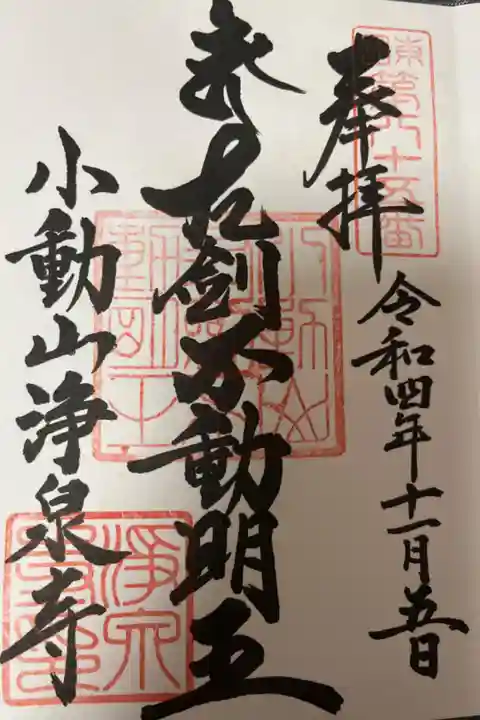 東国第六十五番
奉拝
令和四年十一月五日
九剣不動明王
小動山浄泉寺
浄泉寺印